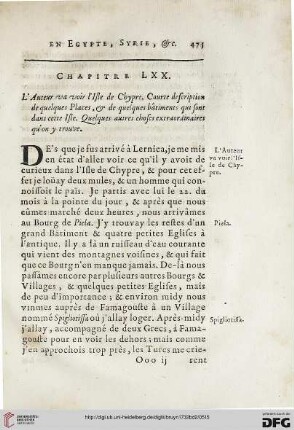 EN EGYPTE, SYRIE, &c. 475
CHAPITRE LXX.
L'Auteur va voir l'Isle de Chypre, Courte description
de quelques Places, & de quelques bâtiments qui sont
dans cette Isle. Quelques autres choses extraordinaires
qu'on y trouve.
DE's que je fus arrivé à Lernica, je me mis
en état d'aller voir ce qu'il y avoit de
curieux dans l'Isle de Chypre, & pour cet ef-
fet je loüay deux mules, & un homme qui con-
noissoit le païs. Je partis avec luy le 21. du
mois à la pointe du jour, & après que nous
eûmes marché deux heures, nous arrivâmes
au Bourg de Piela. J'y trouvay les restes d'un
grand Bâtiment & quatre petites Eglises à
l'antique. Il y a là un ruisseau d'eau courante
qui vient des montagnes voisines, & qui fait
que ce Bourg n'en manque jamais. De-là nous
passâmes encore par plusieurs autres Bourgs &
Villages, & quelques petites Eglises, mais
de peu d'importance; & environ midy nous
vinmes auprès de Famagouste à un Village
nommé Spigliotissa où j'allay loger. Après mi-
dy j'allay, accompagné de deux Grecs, à Fama-
gouste pour en voir les dehors: mais comme
j'en approchois trop près, les Turcs me criè-
Ooo ij rent
L'Auteur
va voir l'Is-
le de Chy-
pre.
Piela.
Spigliotissa.
http://digi.ub.uni-heidelberg.de/diglit/bruyn1732bd2/0515
UNIVERSITÄTS-
BIBLIOTHEK
HEIDELBERG
Gefördert durch die
DFG